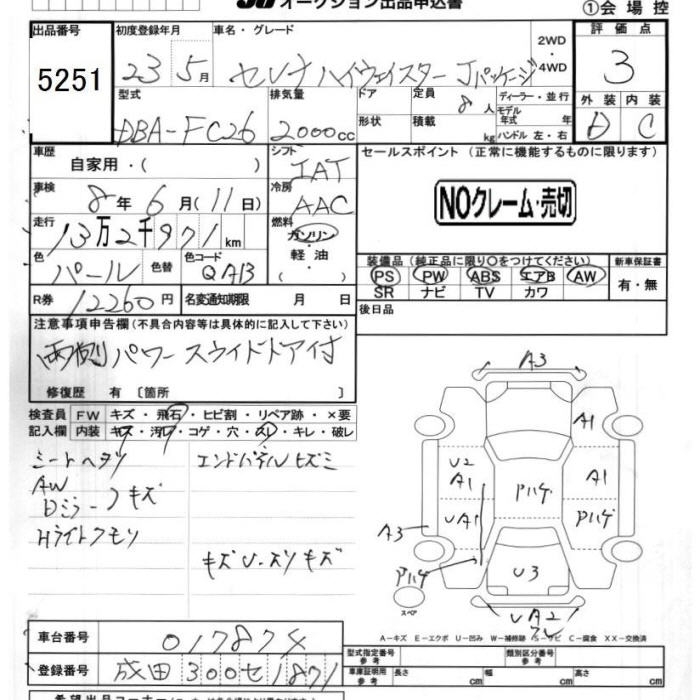 オークション出品申込書 ①会場控
出品番号 初度登録年月 車名・グレード 2WD・4WD 評価点
5251 23 5月 セレナ ハイウェイスター Jパッケージ 3
型式 排気量 ドア 定員 8人 ディーラー・並行 外装 内装
DBA-FC26 2000cc 形状 積載 kg モデル年式 年 ハンドル 左・右 D C
車歴 自家用・( ) シフト IAT セールスポイント (正常に機能するものに限ります)
車検 8年 6月(11日) 冷房 AAC NOクレーム・売切
走行 13万2千971km 燃料 ガソリン・軽油・
色 パール 色替 色コード QAB 装備品 (純正品に限り○をつけてください) 新車保証書
PS PW ABS エアB AW 有・無
SR ナビ TV カワ
R券 12260円 名変通知期限 月 日 後日品
注意事項申告欄(不具合内容等は具体的に記入して下さい)
両側パワースライドドア付
修復歴 有 〔箇所 〕
検査員 FW キズ・飛石・ヒビ割・リペア跡・×要
記入欄 内装 キズ・汚レ・コゲ・穴・スレ・キレ・破レ
シートヘタリ エンドパネルヒズミ
AW
Dミラーフキズ
Hライトクモリ
キズU・スリキズ
A3
A1
U2
A1 A1
Pハゲ
UA1 Pハゲ
A3
Pハゲ U3
スペア
UA2
A-キズ E-エクボ U-凹み W-補修跡 S-サビ C-腐食 XX-交換済
車台番号 017874 型式指定番号 参考 類別区分番号 参考
登録番号 成田 300 セ 1871 車庫証明用 参考 長さ cm 幅 cm 高さ cm